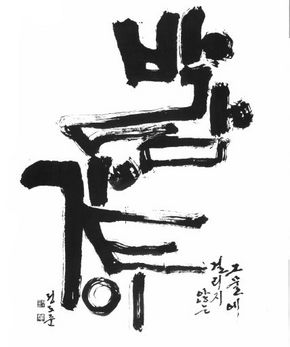 그물에
걸리지
않는
바람
같이